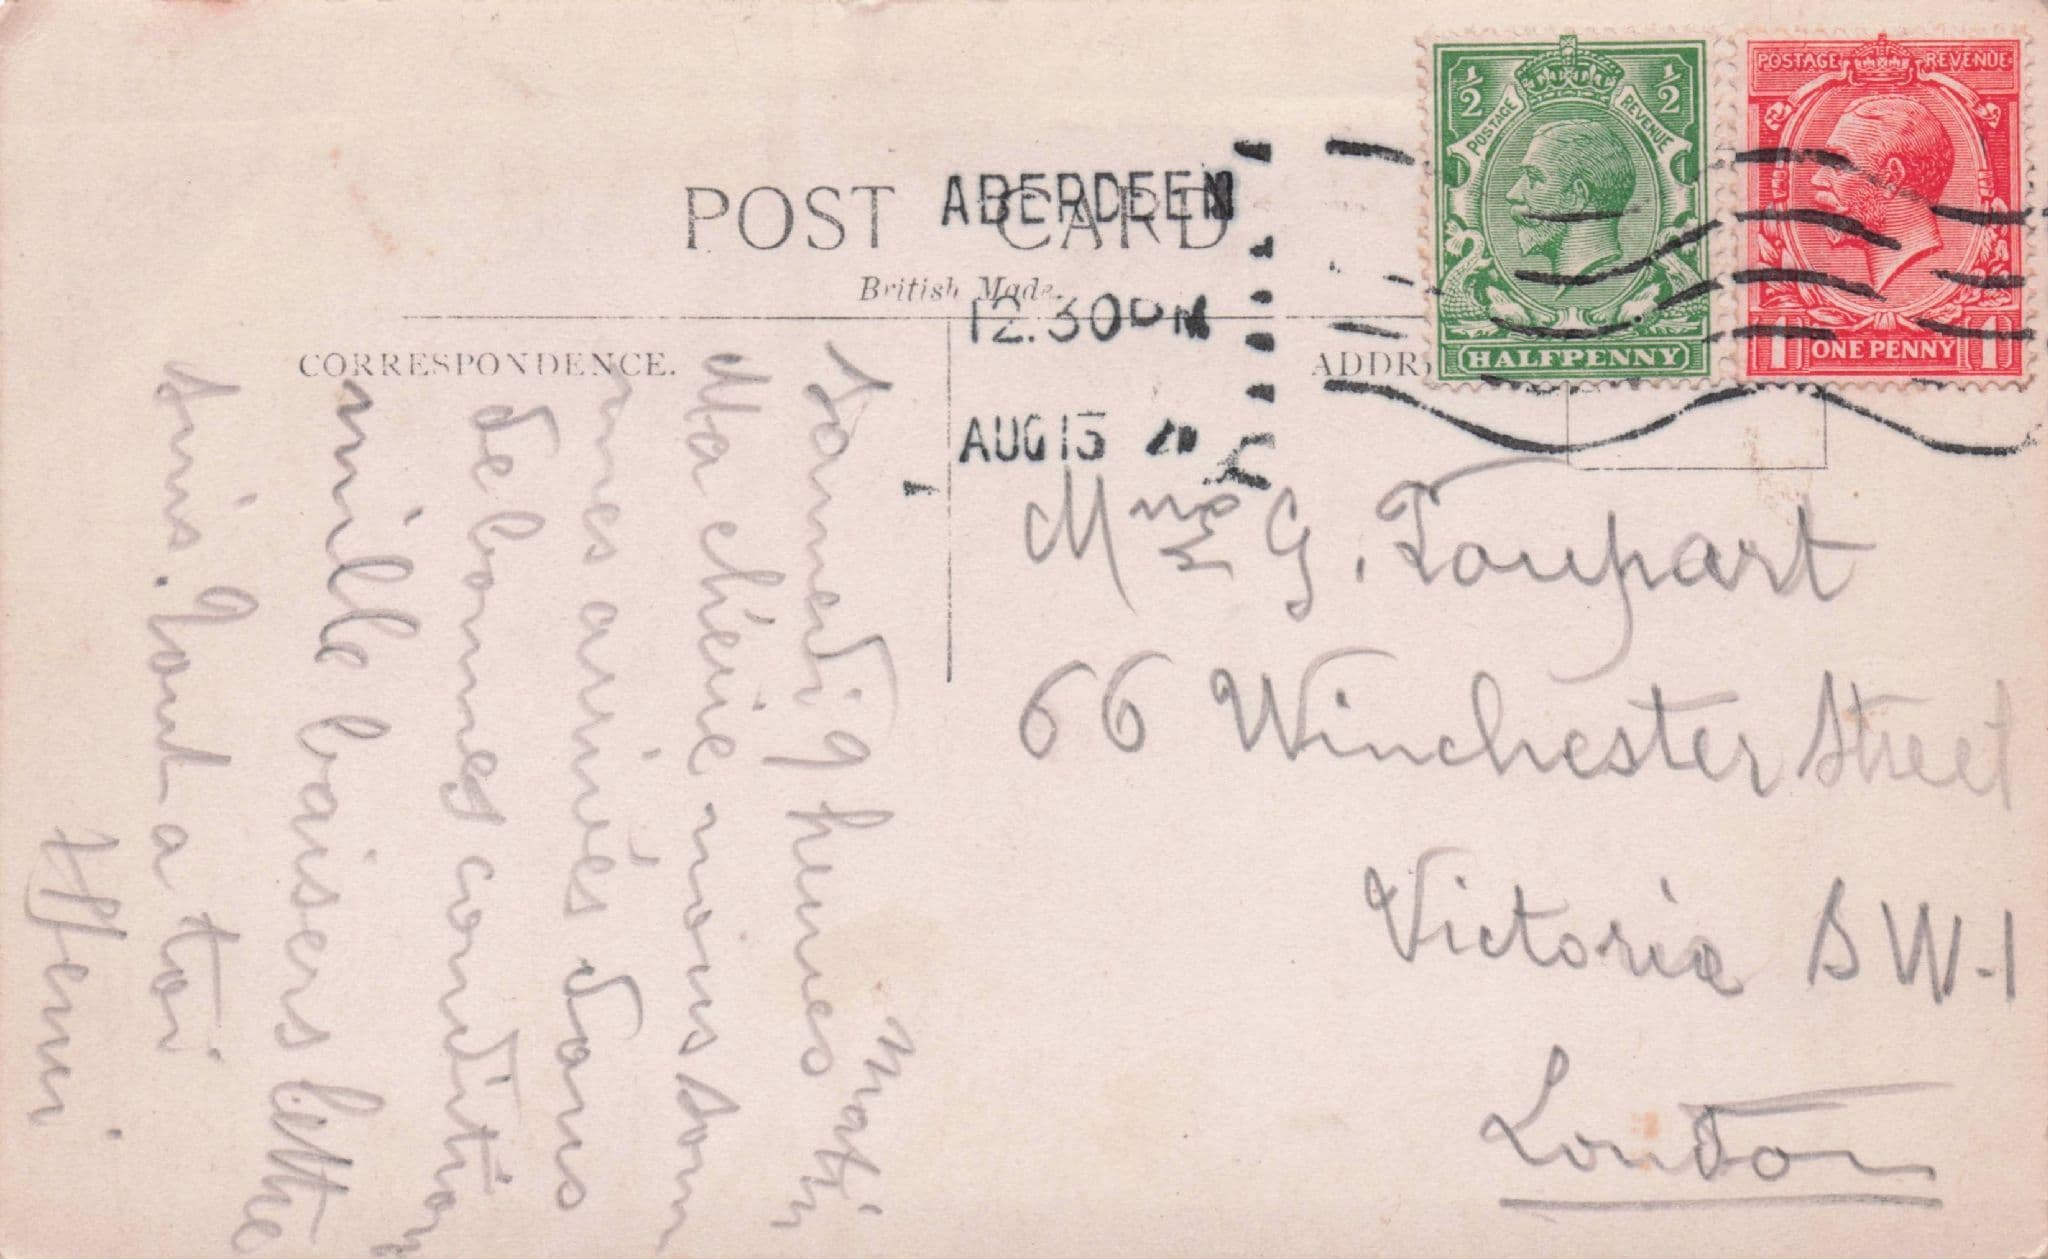 POST CARD
British Made.
CORRESPONDENCE.
ABERDEEN
12.30 PM
AUG 13
½ ½
POSTAGE REVENUE
HALFPENNY
POSTAGE REVENUE
1 ONE PENNY 1
Mme G. Toupart
66 Winchester Street
Victoria S W-1
London
Samedi 9 heures Matin
Ma chérie nous som
mes arrivés dans
de bonnes condition
mille baisers lettre
suis. Tout a toi